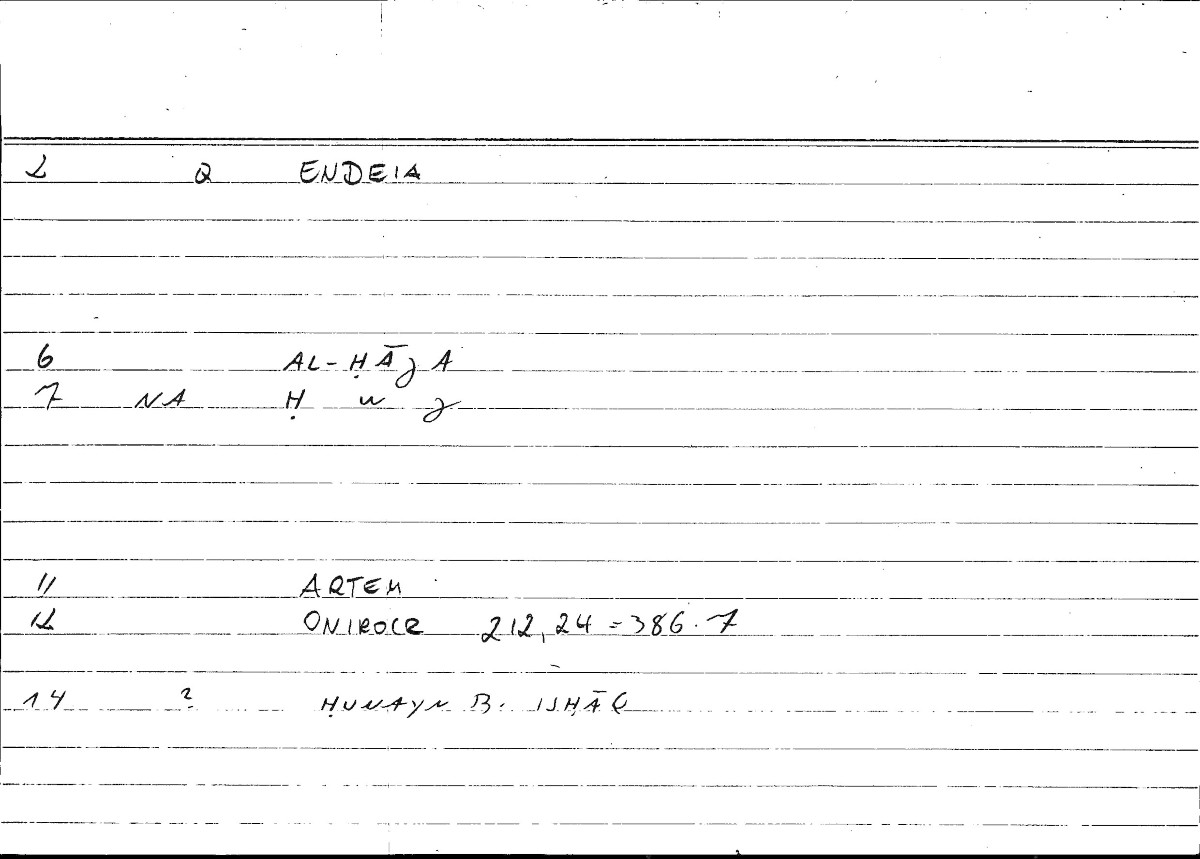 2 Q ENDEIA
6 AL-ḤĀJA
7 NA Ḥ w J
11 ARTEM
12 ONIROCR 212,24 = 386.7
14 ? ḤUNAYN B. ISḤĀQ